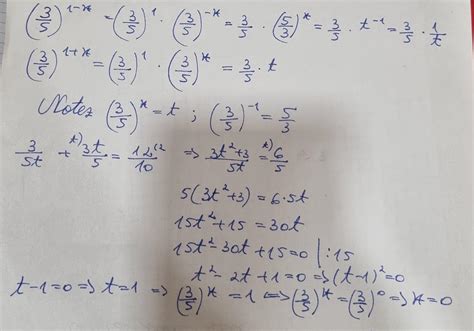 (3/5)^(1-x) = (3/5)^1 · (3/5)^(-x) = 3/5 · (5/3)^x = 3/5 · t^(-1) = 3/5 · 1/t
(3/5)^(1+x) = (3/5)^1 · (3/5)^x = 3/5 · t
Notez (3/5)^x = t ; (3/5)^(-1) = 5/3
3/5t + t) 3t/5 = 12/10 (2 => 3t²+3/5t = t) 6/5
5(3t²+3) = 6·5t
15t²+15 = 30t
15t²-30t+15=0 |:15
t²-2t+1=0 => (t-1)²=0
t-1=0 => t=1 => (3/5)^x = 1 <=> (3/5)^x = (3/5)^0 => x=0